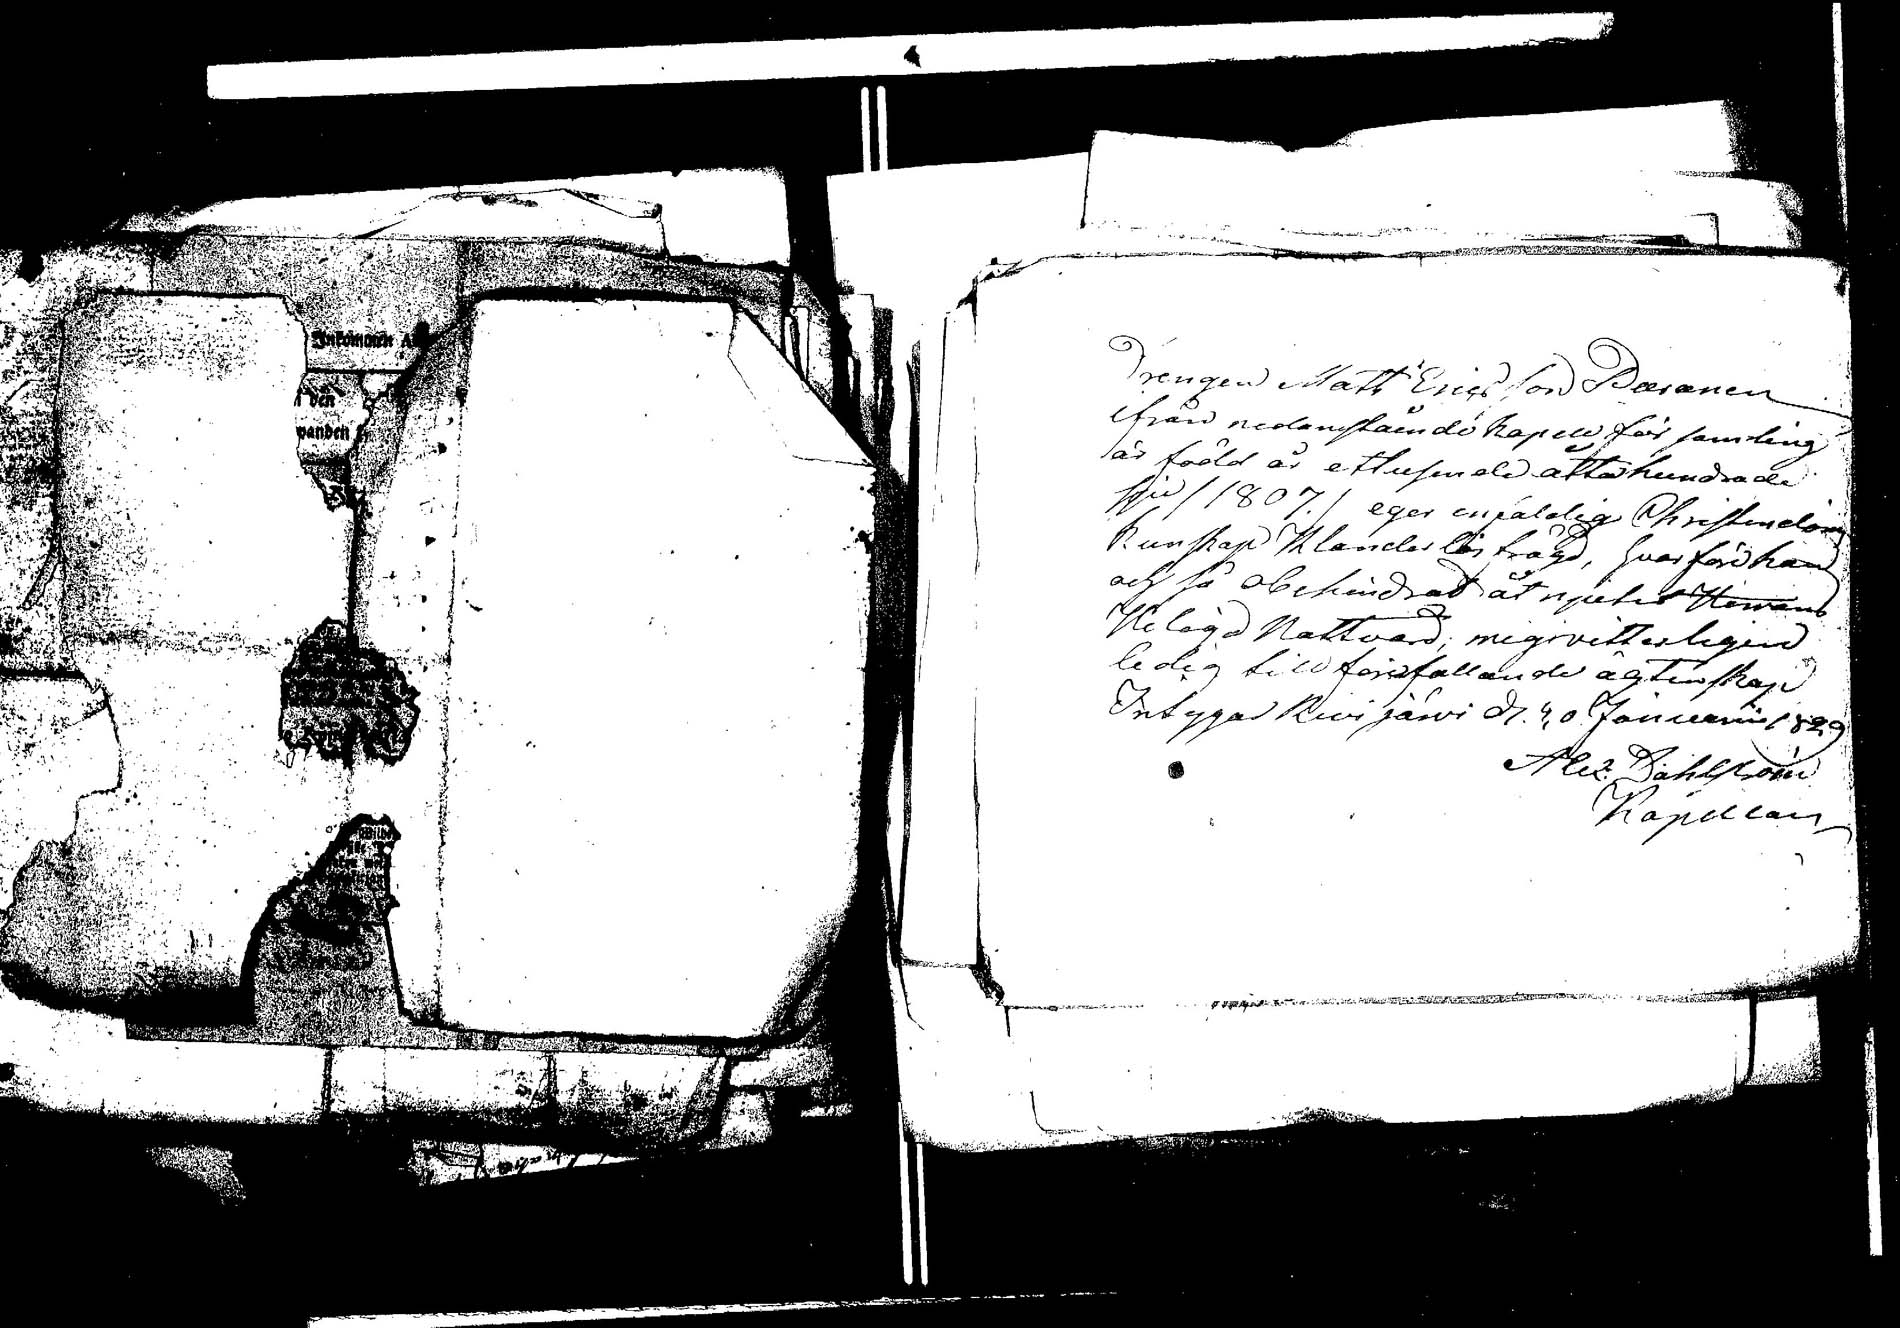 Inkommen A
n den
wanden
Drengen Matts Ericsson Pæsanen
ifrån nedanstående Kapell församling
är född år ettusende åttahundrade
sju /1807./ eger enfaldig Christendoms
Kunskap Klanderlös frägd, hvarföre han
och så obehindrad åtnjuter Herrans
Heliga Nattvard; mig vitterligen
ledig till förefallande ägtenskap
Intygar Kivijärvi d. Januarii 1829
Alex. Dahlström
Kapellan